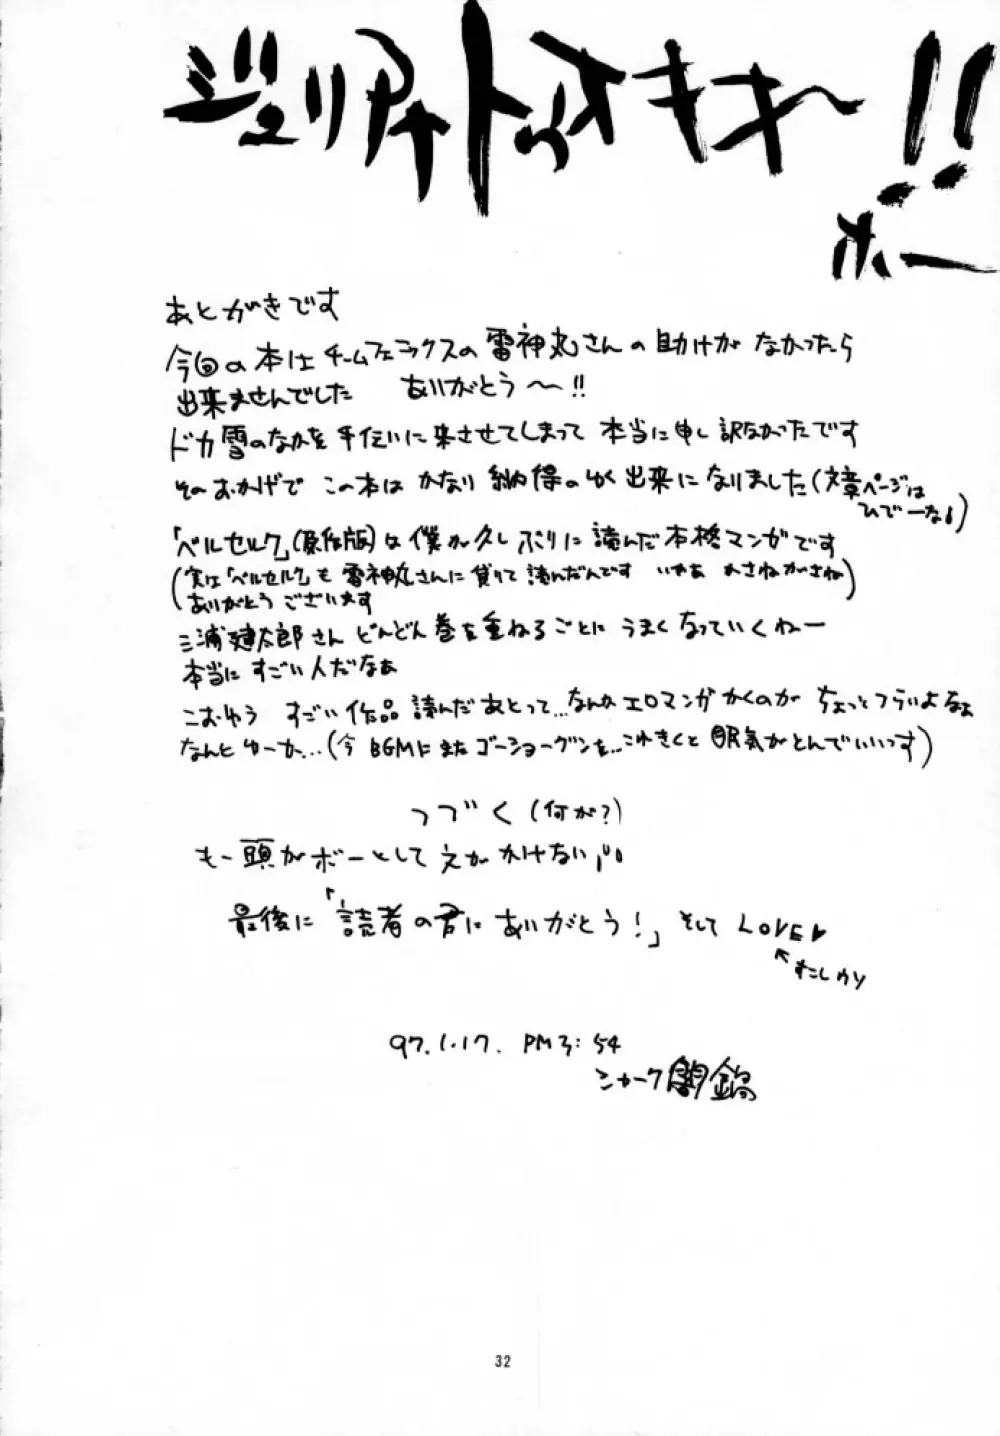 ボー
あとがきです
今回の本はチームフェニックスの雷神丸さんの助けがなかったら
出来ませんでした ありがとう〜!!
ドカ雪のなかを手伝いに来させてしまって本当に申し訳なかったです
そのおかげでこの本はかなり納得のゆく出来になりました(文章ページは
ひでーなぁ)
「ベルセルク」(原作版)は僕が久しぶりに読んだ本格マンガです
(実は「ベルセルク」も雷神丸さんに借りて読んだんです いやぁ かさねがさね
ありがとうございます)
三浦建太郎さん どんどん巻を重ねるごとにうまくなっていくねー
本当にすごい人だなぁ
こおゆう すごい作品読んだあとって…なんかエロマンガかくのが ちょっとつらいよなぁ
なんとゆーか…(今BGMにまたゴーショーグンを…これきくと眠気がとんでいいっす)
つづく(何が?)
もー頭がボーとしてえがかけない
最後に「読者の君にありがとう!」そしてLOVE♥
97.1.17. PM3:54
シャーク闇鍋
32